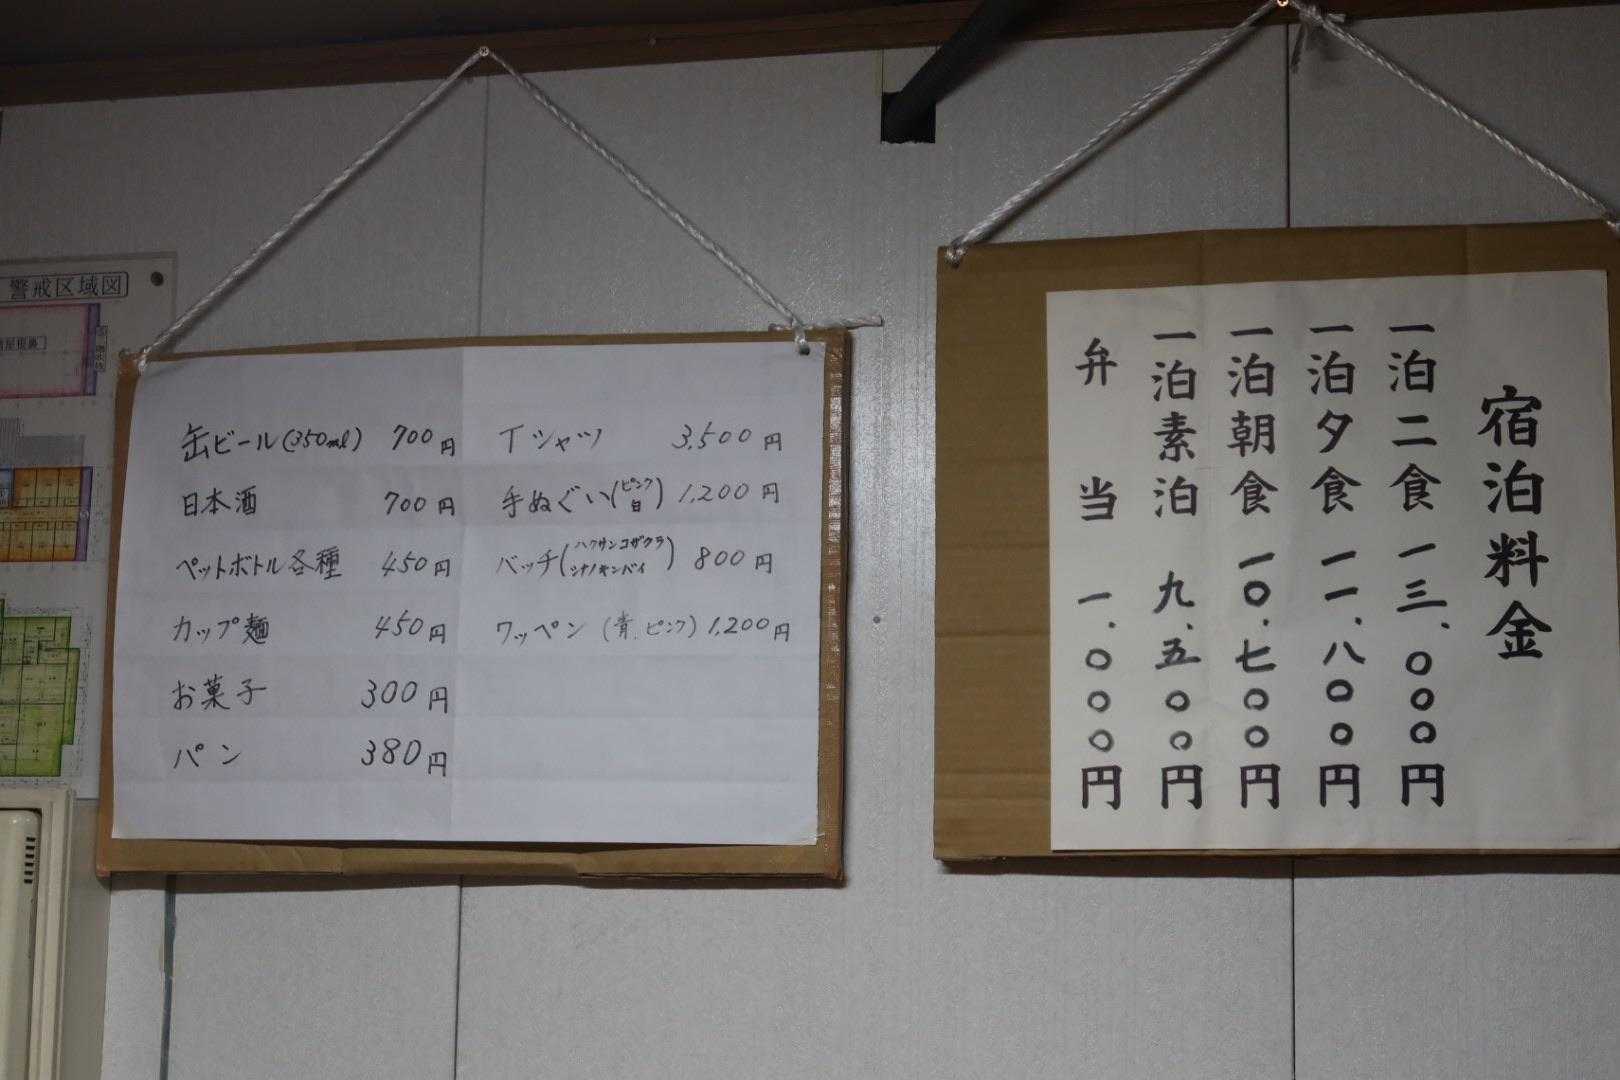 警戒区域図
缶ビール(350ml) 700円
日本酒 700円
ペットボトル各種 450円
カップ麺 450円
お菓子 300円
パン 380円
Tシャツ 3,500円
手ぬぐい(ピンク 白) 1,200円
バッチ(ハクサンコザクラ シナノキンバイ) 800円
ワッペン(青、ピンク) 1,200円
宿泊料金
一泊二食 一三、〇〇〇円
一泊夕食 一一、八〇〇円
一泊朝食 一〇、七〇〇円
一泊素泊 九、五〇〇円
弁当 一、〇〇〇円